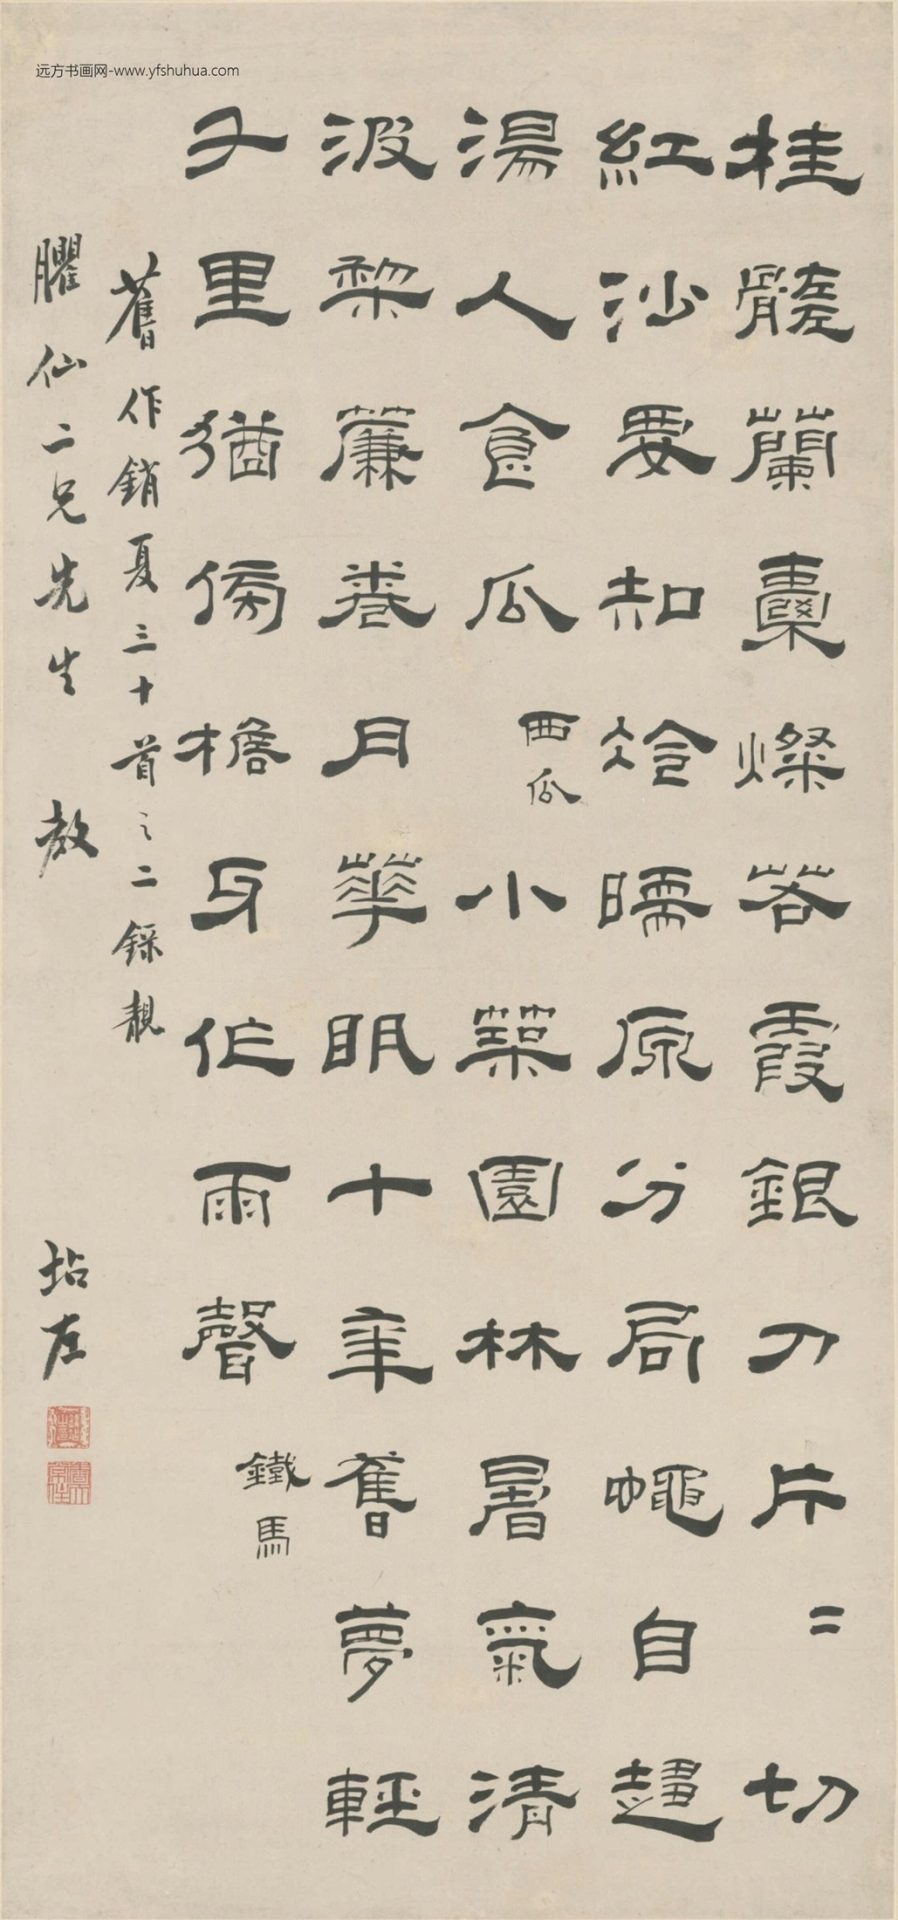 远方书画网-www.yfshuhua.com
桂髓蘭橐燦若霞銀刀片二切
紅沙要知冷暖原分局蠅自趨
湯人食瓜 西瓜 小築園林暑氣清
波棃簾卷月華明十年舊夢輕
里猶傍檐牙作雨聲 鐵馬
舊作銷夏三十首之二錄靚
臞仙二兄先生 教
坫左